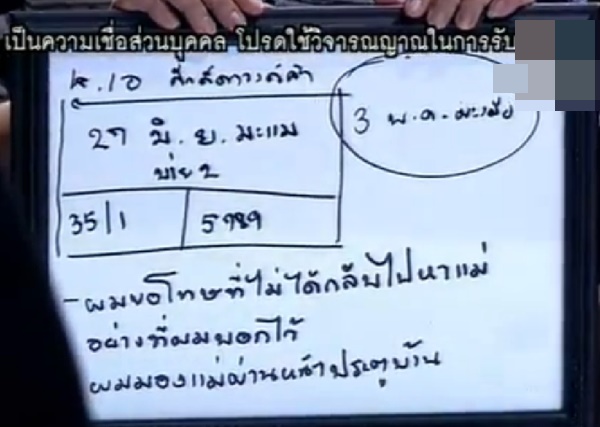 เป็นความเชื่อส่วนบุคคล โปรดใช้วิจารณญาณในการรับ
27 มิ.ย. มะแม
บ่าย 2
3 พ.ค. มะเมีย
35/1
5789
- ผมขอโทษที่ไม่ได้กลับไปหาแม่
อย่างที่ผมบอกไว้
ผมมองแม่ผ่านหน้าประตูบ้าน